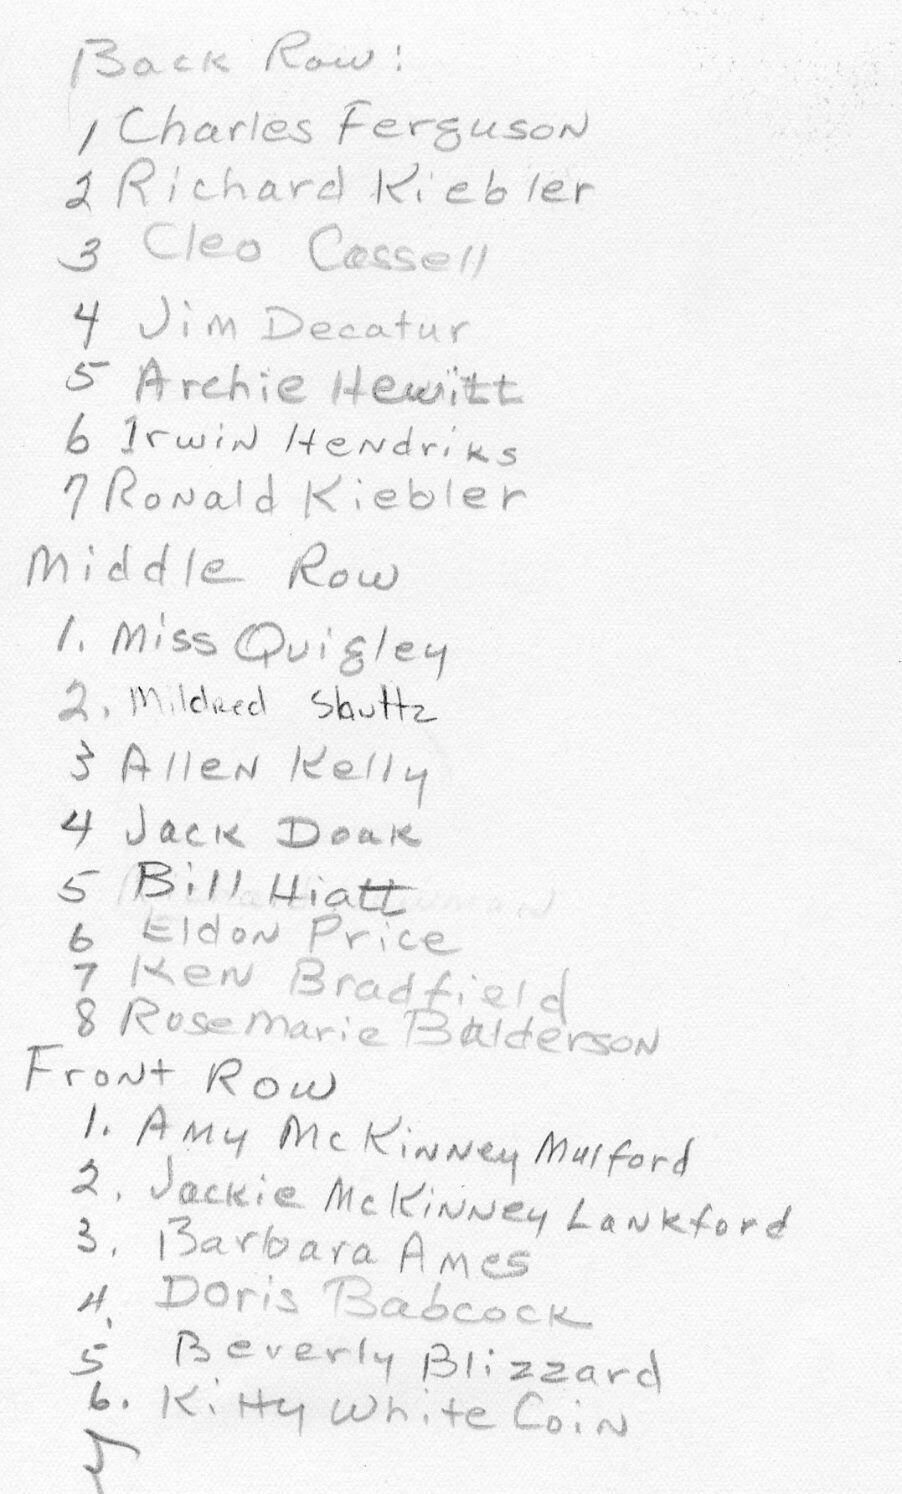 Back Row:
1 Charles Ferguson
2 Richard Kiebler
3 Cleo Cassell
4 Jim Decatur
5 Archie Hewitt
6 Irwin Hendriks
7 Ronald Kiebler
Middle Row
1. Miss Quigley
2. Mildred Shuttz
3 Allen Kelly
4 Jack Doak
5 Bill Hiatt
6 Eldon Price
7 Ken Bradfield
8 Rosemarie Balderson
Front Row
1. Amy McKinney Mulford
2. Jackie McKinney Lankford
3. Barbara Ames
4. Doris Babcock
5 Beverly Blizzard
6. Kitty White Coin